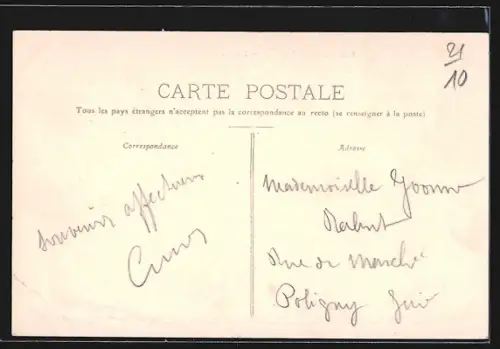 21
10
CARTE POSTALE
Tous les pays étrangers n'acceptent pas la correspondance au recto (se renseigner à la poste)
Correspondance
Adresse
Souvenirs affectueux
Mademoiselle Yvonne
Rue du Marché
Poligny Jura